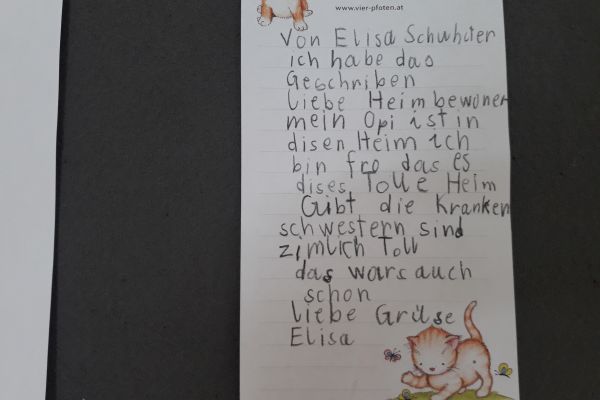 www.vier-pfoten.at
Von Elisa Schuhcter
ich habe das
Geschriben
liebe Heimbewoner
mein Opi ist in
disen Heim ich
bin fro das es
dises Tolle Heim
Gibt die Kranken
schwestern sind
zimlich Toll
das wars auch
schon
liebe Grüse
Elisa